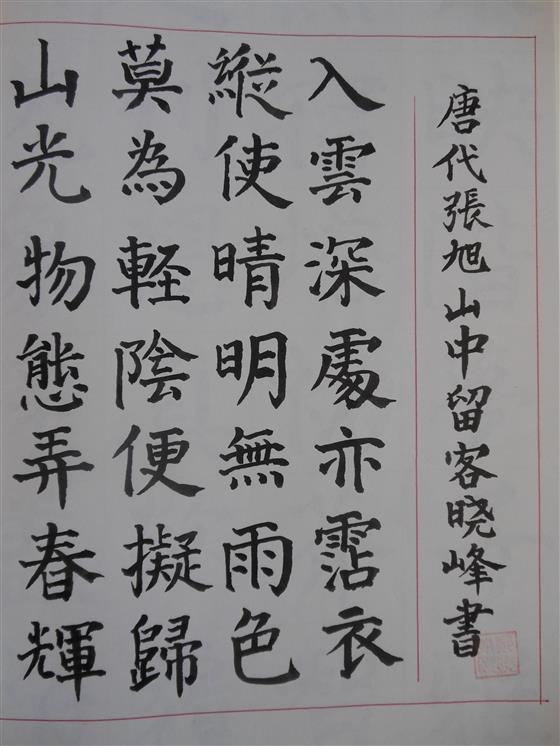 山光物態弄春輝
莫為軽陰便擬歸
縱使晴明無雨色
入雲深處亦霑衣
唐代張旭山中留客晓峰書